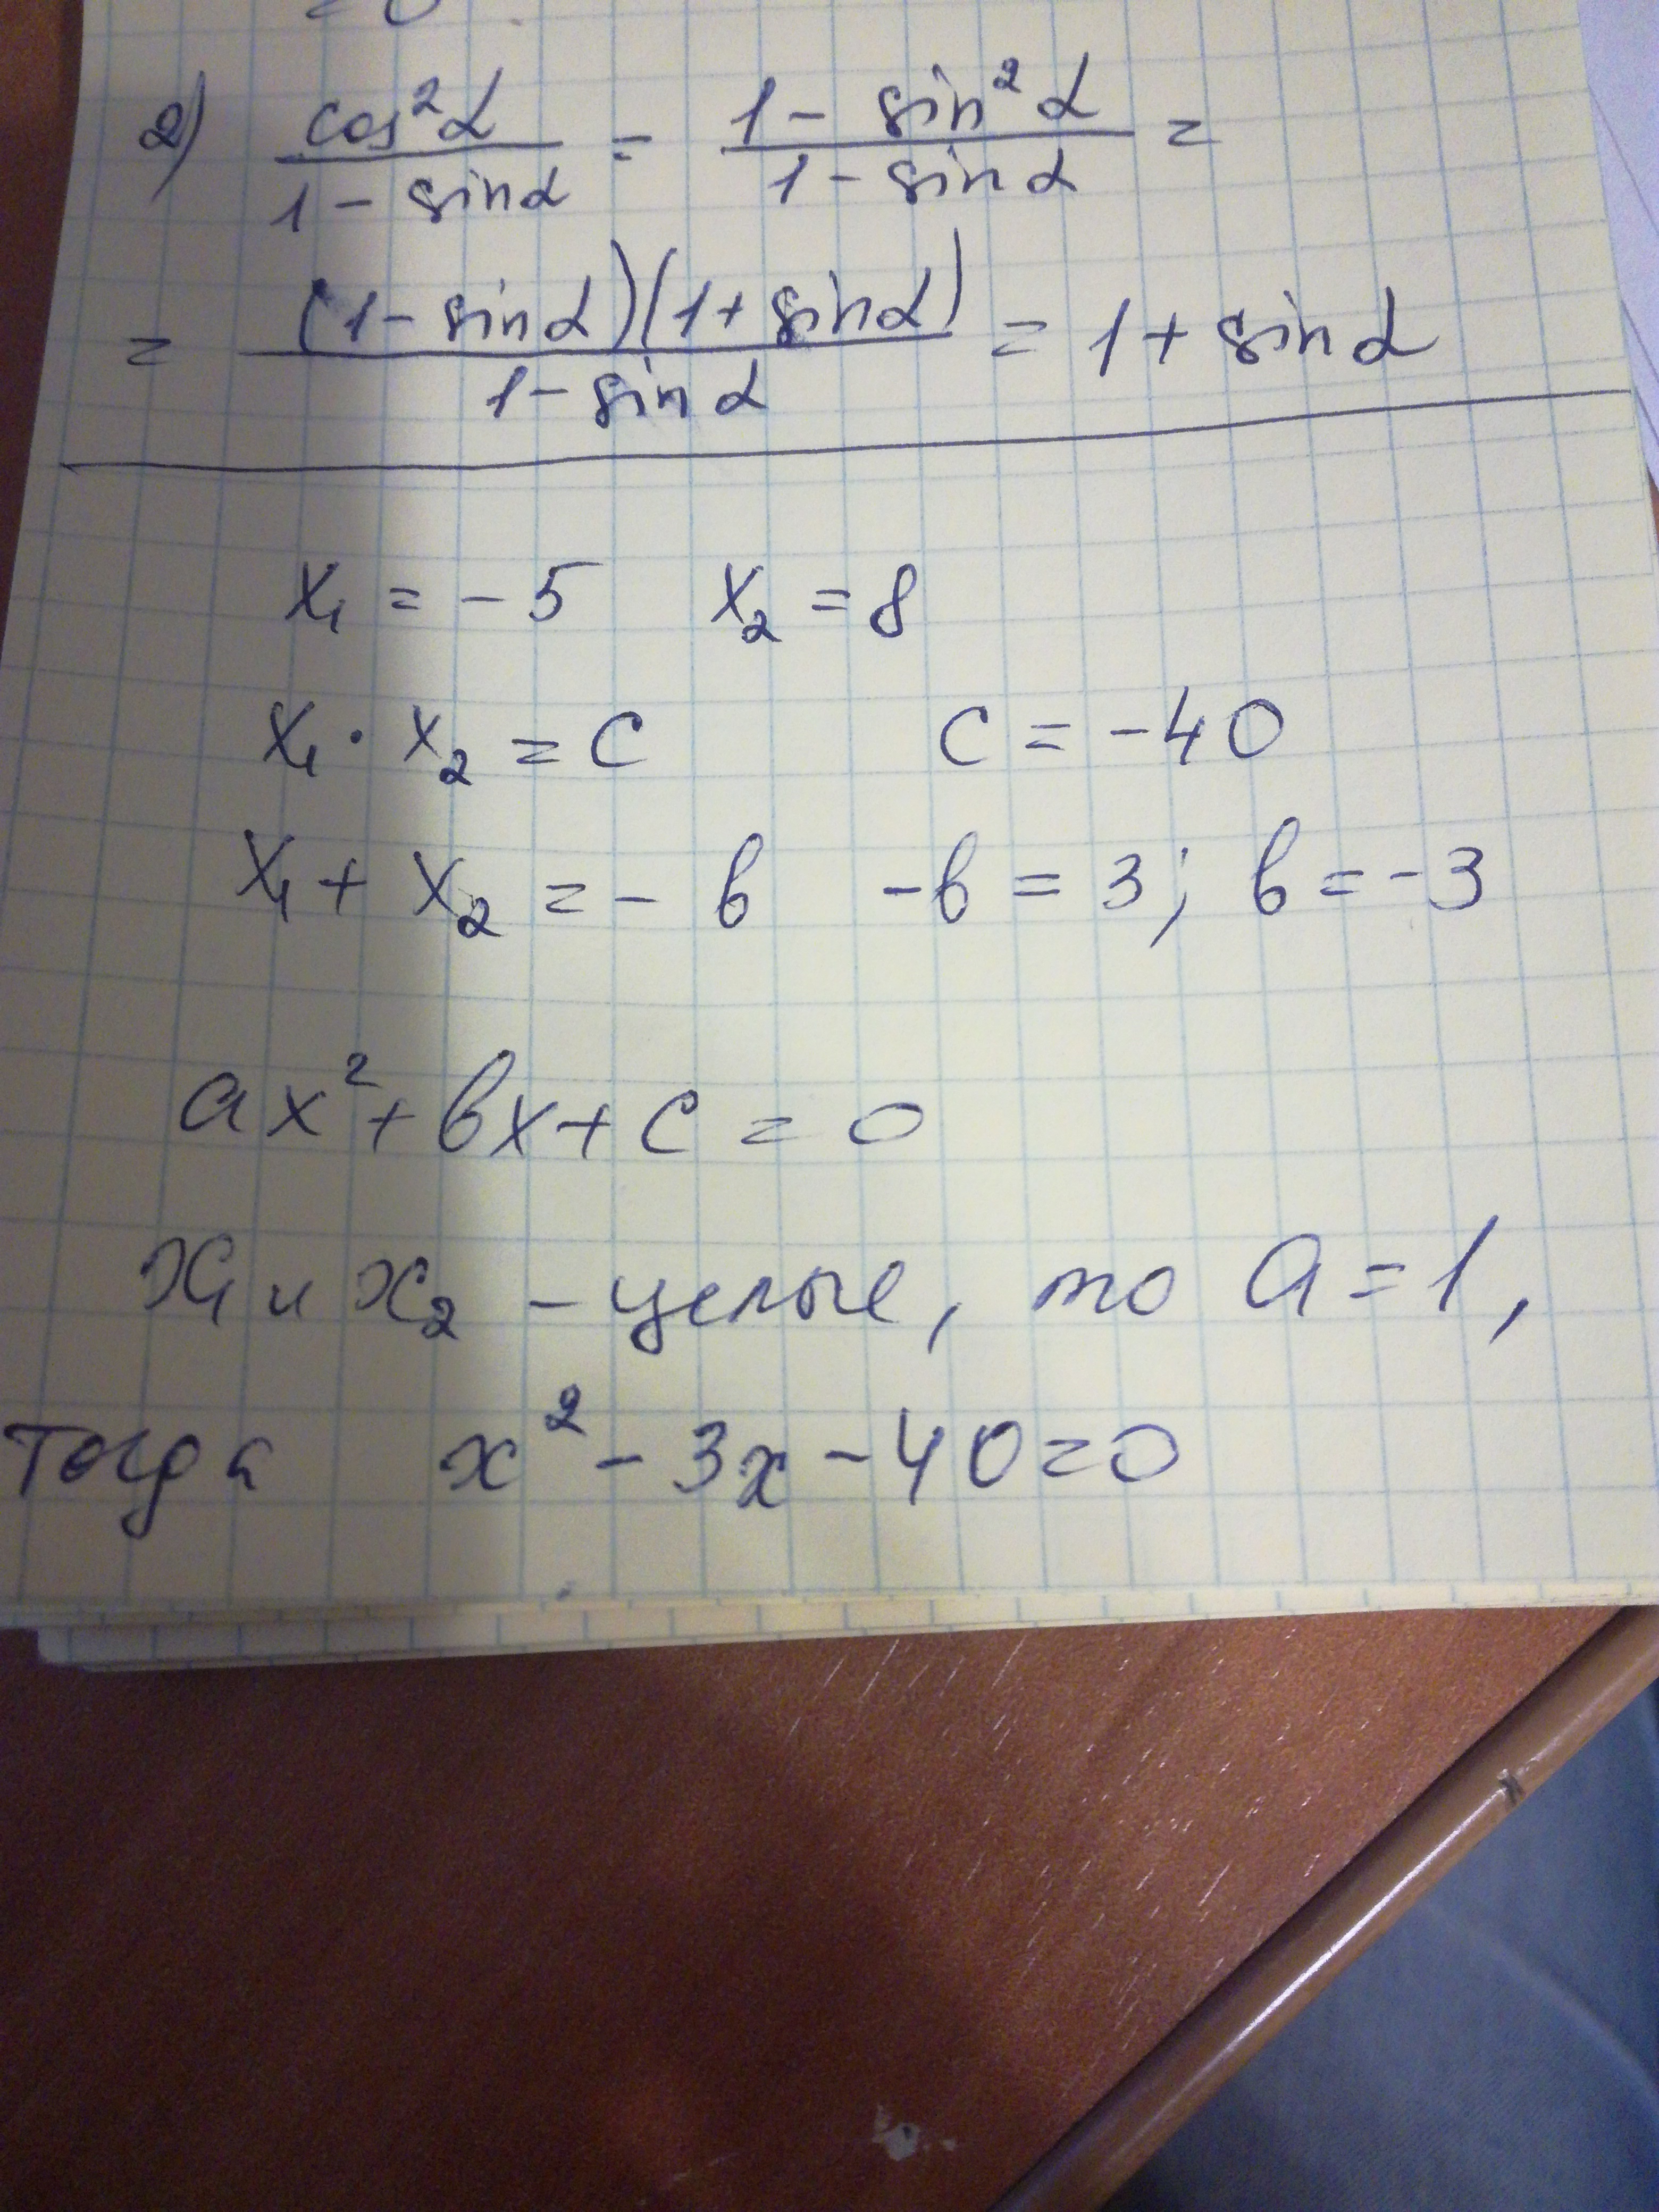 = 0
2) cos²α / 1 - sinα = 1 - sin²α / 1 - sinα =
= (1 - sinα)(1 + sinα) / 1 - sinα = 1 + sinα
x₁ = -5 x₂ = 8
x₁ · x₂ = c c = -40
x₁ + x₂ = - в -в = 3; в = -3
ax² + вx + c = 0
x₁ и x₂ - целые, то a = 1,
тогда x² - 3x - 40 = 0